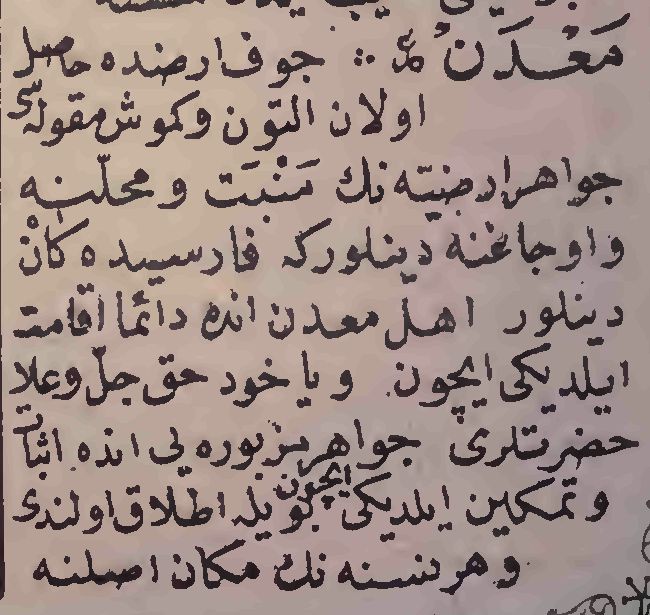 مَعْدَنٌ ؞ جوف ارضده حاصل
اولان التون وكموش مقوله سى
جواهر ارضيّه نك مَنْبَت ومحلّنه
واوجاغنه دينلور كه فارسيده كَانْ
دينلور اهل معدن انده دائما اقامت
ايلديكى ايچون ويا خود حق جلّ وعلا
حضرتلرى جواهر مزبوره يى انده اثبات
وتمكين ايلديكى ايچون بويله اطلاق اولندى
وهر نسنه نك مكان اصلنه